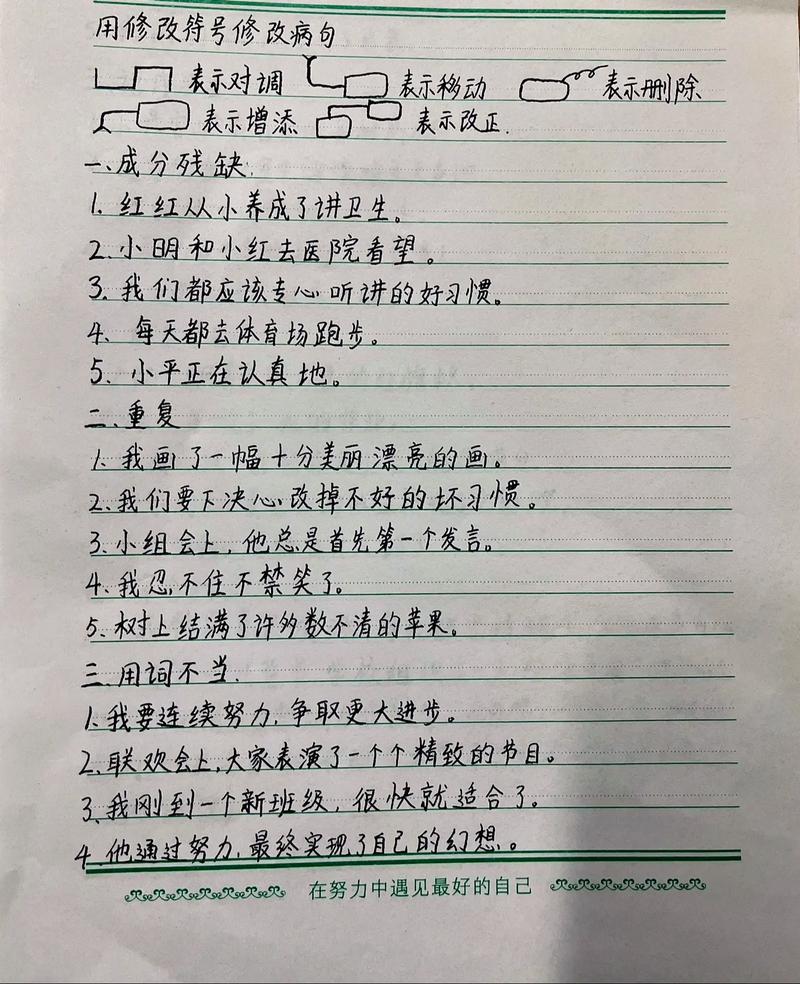 用修改符号修改病句
表示对调 表示移动 表示删除
表示增添 表示改正.
一、成分残缺:
1. 红红从小养成了讲卫生。
2. 小明和小红去医院看望。
3. 我们都应该专心听讲的好习惯。
4. 每天都去体育场跑步。
5. 小平正在认真地。
二、重复
1. 我画了一幅十分美丽漂亮的画。
2. 我们要下决心改掉不好的坏习惯。
3. 小组会上，他总是首先第一个发言。
4. 我忍不住不禁笑了。
5. 树上结满了许多数不清的苹果。
三、用词不当.
1. 我要连续努力，争取更大进步。
2. 联欢会上，大家表演了一个个精致的节目。
3. 我刚到一个新班级，很快就适合了。
4. 他通过努力，最终实现了自己的幻想。
在努力中遇见最好的自己